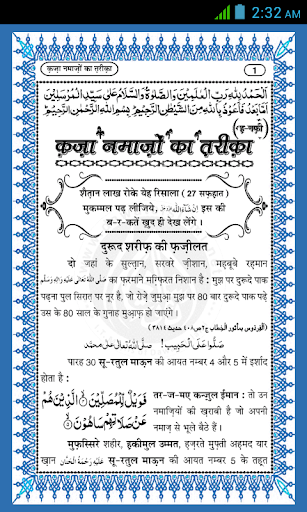 2:32 AM
क़ज़ा नमाज़ों का त़रीक़ा
1
اَلْحَمْدُ لِلّٰهِ رَبِّ الْعٰلَمِيْنَ وَالصَّلٰوةُ وَالسَّلَامُ عَلٰى سَيِّدِ الْمُرْسَلِيْنَ
اَمَّا بَعْدُ فَاَعُوْذُ بِاللّٰهِ مِنَ الشَّيْطٰنِ الرَّجِيْمِ بِسْمِ اللّٰهِ الرَّحْمٰنِ الرَّحِيْمِ
(ह़-नफ़ी)
क़ज़ा नमाज़ों का त़रीक़ा
शैत़ान लाख रोके येह रिसाला ( 27 सफ़ह़ात )
मुकम्मल पढ़ लीजिये, اِنْ شَآءَ اللّٰه इस की
ब-र-कतें ख़ुद ही देख लेंगे ।
दुरूद शरीफ़ की फ़ज़ीलत
दो जहां के सुल्त़ान, सरवरे ज़ीशान, मह़बूबे रह़मान
صَلَّى اللّٰهُ تَعَالٰى عَلَيْهِ وَاٰلِهٖ وَسَلَّم का फ़रमाने मग़्फ़िरत निशान है : मुझ पर दुरूदे पाक
पढ़ना पुल सिरात़ पर नूर है, जो रोज़े जुमुआ़ मुझ पर 80 बार दुरूदे पाक पढ़े
उस के 80 साल के गुनाह मुआ़फ़ हो जाएंगे ।
(اَلْفِرْدَوْس بمأثور الْخِطَاب ج٢ ص٤٠٨ حديث ٣٨١٤)
صَلُّوْا عَلَى الْحَبِيْب! صَلَّى اللّٰهُ تَعَالٰى عَلٰى مُحَمَّد
पारह 30 सू-रतुल माऊ़न की आयत नम्बर 4 और 5 में इर्शाद
होता है :
فَوَيْلٌ لِّلْمُصَلِّيْنَ ۙ الَّذِيْنَ هُمْ तर-ज-मए कन्ज़ुल ईमान : तो उन
عَنْ صَلَاتِهِمْ سَاهُوْنَ ۙ नमाज़ियों की ख़राबी है जो अपनी
नमाज़ से भूले बैठे हैं ।
मुफ़स्सिरे शहीर, ह़कीमुल उम्मत, ह़ज़रते मुफ़्ती अह़मद यार
ख़ान عَلَيْهِ رَحْمَةُ الْحَنَّان सू-रतुल माऊ़न की आयत नम्बर 5 के तह़त